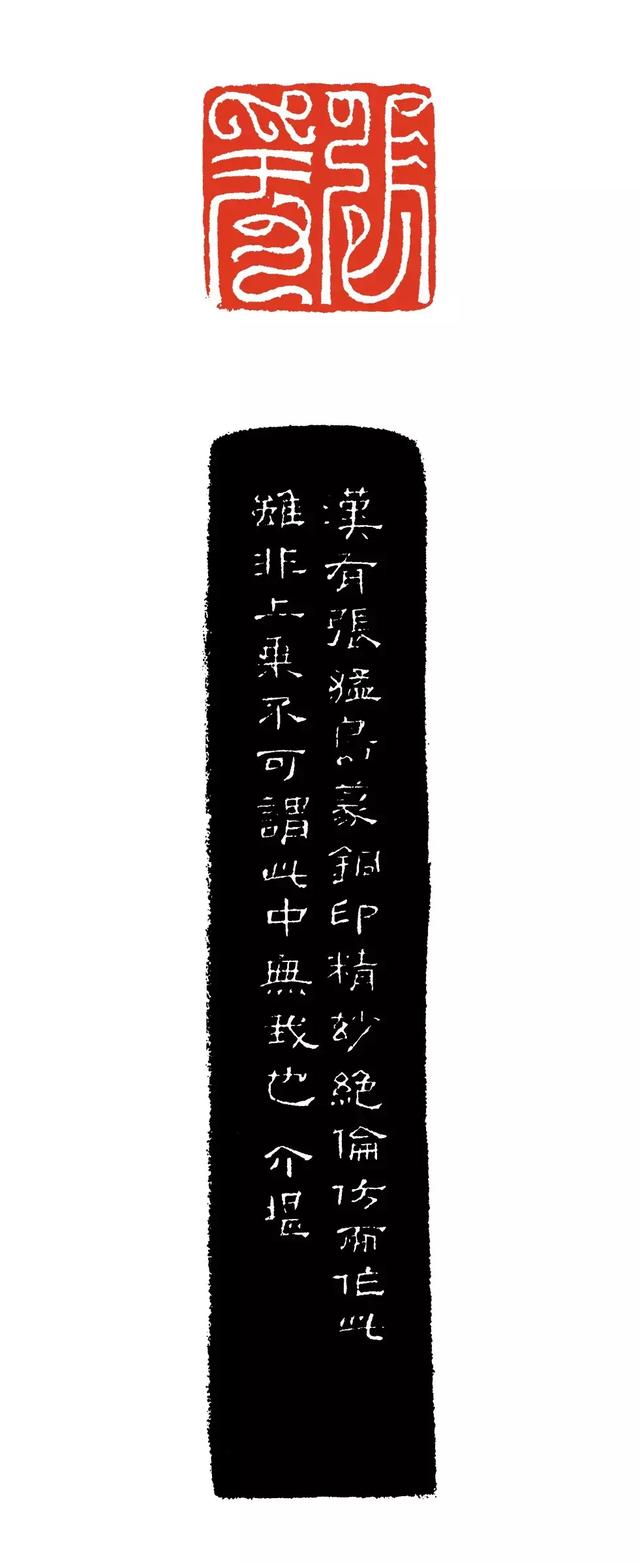 張爰
漢有張猛鳥篆銅印精妙絕倫仿而作此
雖非上乘不可謂此中無我也 介堪